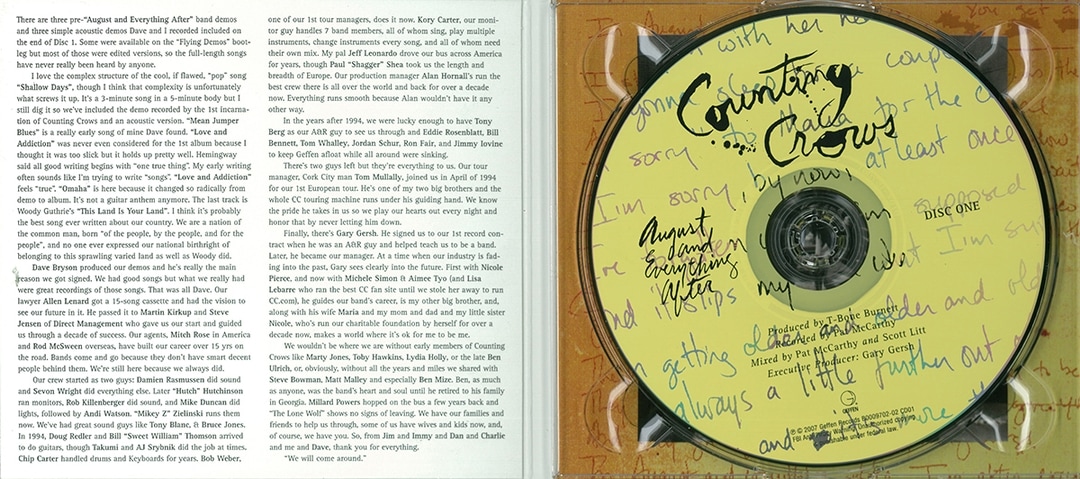 There are three pre-"August and Everything After" band demos
and three simple acoustic demos Dave and I recorded included on
the end of Disc 1. Some were available on the "Flying Demos" boot-
leg but most of those were edited versions, so the full-length songs
have never really been heard by anyone.
I love the complex structure of the cool, if flawed, "pop" song
"Shallow Days", though I think that complexity is unfortunately
what screws it up. It's a 3-minute song in a 5-minute body but I
still dig it so we've included the demo recorded by the 1st incarna-
tion of Counting Crows and an acoustic version. "Mean Jumper
Blues" is a really early song of mine Dave found. "Love and
Addiction" was never even considered for the 1st album because I
thought it was too slick but it holds up pretty well. Hemingway
said all good writing begins with "one true thing". My early writing
often sounds like I'm trying to write "songs". "Love and Addiction"
feels "true". "Omaha" is here because it changed so radically from
demo to album. It's not a guitar anthem anymore. The last track is
Woody Guthrie's "This Land Is Your Land". I think it's probably
the best song ever written about our country. We are a nation of
the common man, born "of the people, by the people, and for the
people", and no one ever expressed our national birthright of
belonging to this sprawling varied land as well as Woody did.
Dave Bryson produced our demos and he's really the main
reason we got signed. We had good songs but what we really had
were great recordings of those songs. That was all Dave. Our
lawyer Allen Lenard got a 15-song cassette and had the vision to
see our future in it. He passed it to Martin Kirkup and Steve
Jensen of Direct Management who gave us our start and guided
us through a decade of success. Our agents, Mitch Rose in America
and Rod McSween overseas, have built our career over 15 yrs on
the road. Bands come and go because they don't have smart decent
people behind them. We're still here because we always did.
Our crew started as two guys: Damien Rasmussen did sound
and Sevon Wright did everything else. Later "Hutch" Hutchinson
ran monitors, Rob Killenberger did sound, and Mike Duncan did
lights, followed by Andi Watson. "Mikey Z" Zielinski runs them
now. We've had great sound guys like Tony Blanc, & Bruce Jones.
In 1994, Doug Redler and Bill "Sweet William" Thomson arrived
to do guitars, though Takumi and AJ Srybnik did the job at times.
Chip Carter handled drums and Keyboards for years. Bob Weber,
one of our 1st tour managers, does it now. Kory Carter, our moni-
tor guy handles 7 band members, all of whom sing, play multiple
instruments, change instruments every song, and all of whom need
their own mix. My pal Jeff Leonardo drove our bus across America
for years, though Paul "Shagger" Shea took us the length and
breadth of Europe. Our production manager Alan Hornall's run the
best crew there is all over the world and back for over a decade
now. Everything runs smooth because Alan wouldn't have it any
other way.
In the years after 1994, we were lucky enough to have Tony
Berg as our A&R guy to see us through and Eddie Rosenblatt, Bill
Bennett, Tom Whalley, Jordan Schur, Ron Fair, and Jimmy Iovine
to keep Geffen afloat while all around were sinking.
There's two guys left but they're everything to us. Our tour
manager, Cork City man Tom Mullally, joined us in April of 1994
for our 1st European tour. He's one of my two big brothers and the
whole CC touring machine runs under his guiding hand. We know
the pride he takes in us so we play our hearts out every night and
honor that by never letting him down.
Finally, there's Gary Gersh. He signed us to our 1st record con-
tract when he was an A&R guy and helped teach us to be a band.
Later, he became our manager. At a time when our industry is fad-
ing into the past, Gary sees clearly into the future. First with Nicole
Pierce, and now with Michele Simon & Aimee Tyo (and Lisa
Lebarre who ran the best CC fan site until we stole her away to run
CC.com), he guides our band's career, is my other big brother, and,
along with his wife Maria and my mom and dad and my little sister
Nicole, who's run our charitable foundation by herself for over a
decade now, makes a world where it's ok for me to be me.
We wouldn't be where we are without early members of Counting
Crows like Marty Jones, Toby Hawkins, Lydia Holly, or the late Ben
Ulrich, or, obviously, without all the years and miles we shared with
Steve Bowman, Matt Malley and especially Ben Mize. Ben, as much
as anyone, was the band's heart and soul until he retired to his family
in Georgia. Millard Powers hopped on the bus a few years back and
"The Lone Wolf" shows no signs of leaving. We have our families and
friends to help us through, some of us have wives and kids now, and,
of course, we have you. So, from Jim and Immy and Dan and Charlie
and me and Dave, thank you for everything.
"We will come around."
with her
gonna sleep
couple
Counting
Crows
for the
sorry
at least once
I'm sorry, by now
supposed
DISC ONE
August
and
Everything
After
I'm
slips my
Produced by T-Bone Burnett
Recorded by Pat McCarthy
Mixed by Pat McCarthy and Scott Litt
Executive Producer: Gary Gersh
getting older and older and
always a little further out
GEFFEN
℗ © 2007 Geffen Records B0009702-02 CD01
FBI Anti-Piracy Warning: Unauthorized copying
punishable under federal law.
and
more